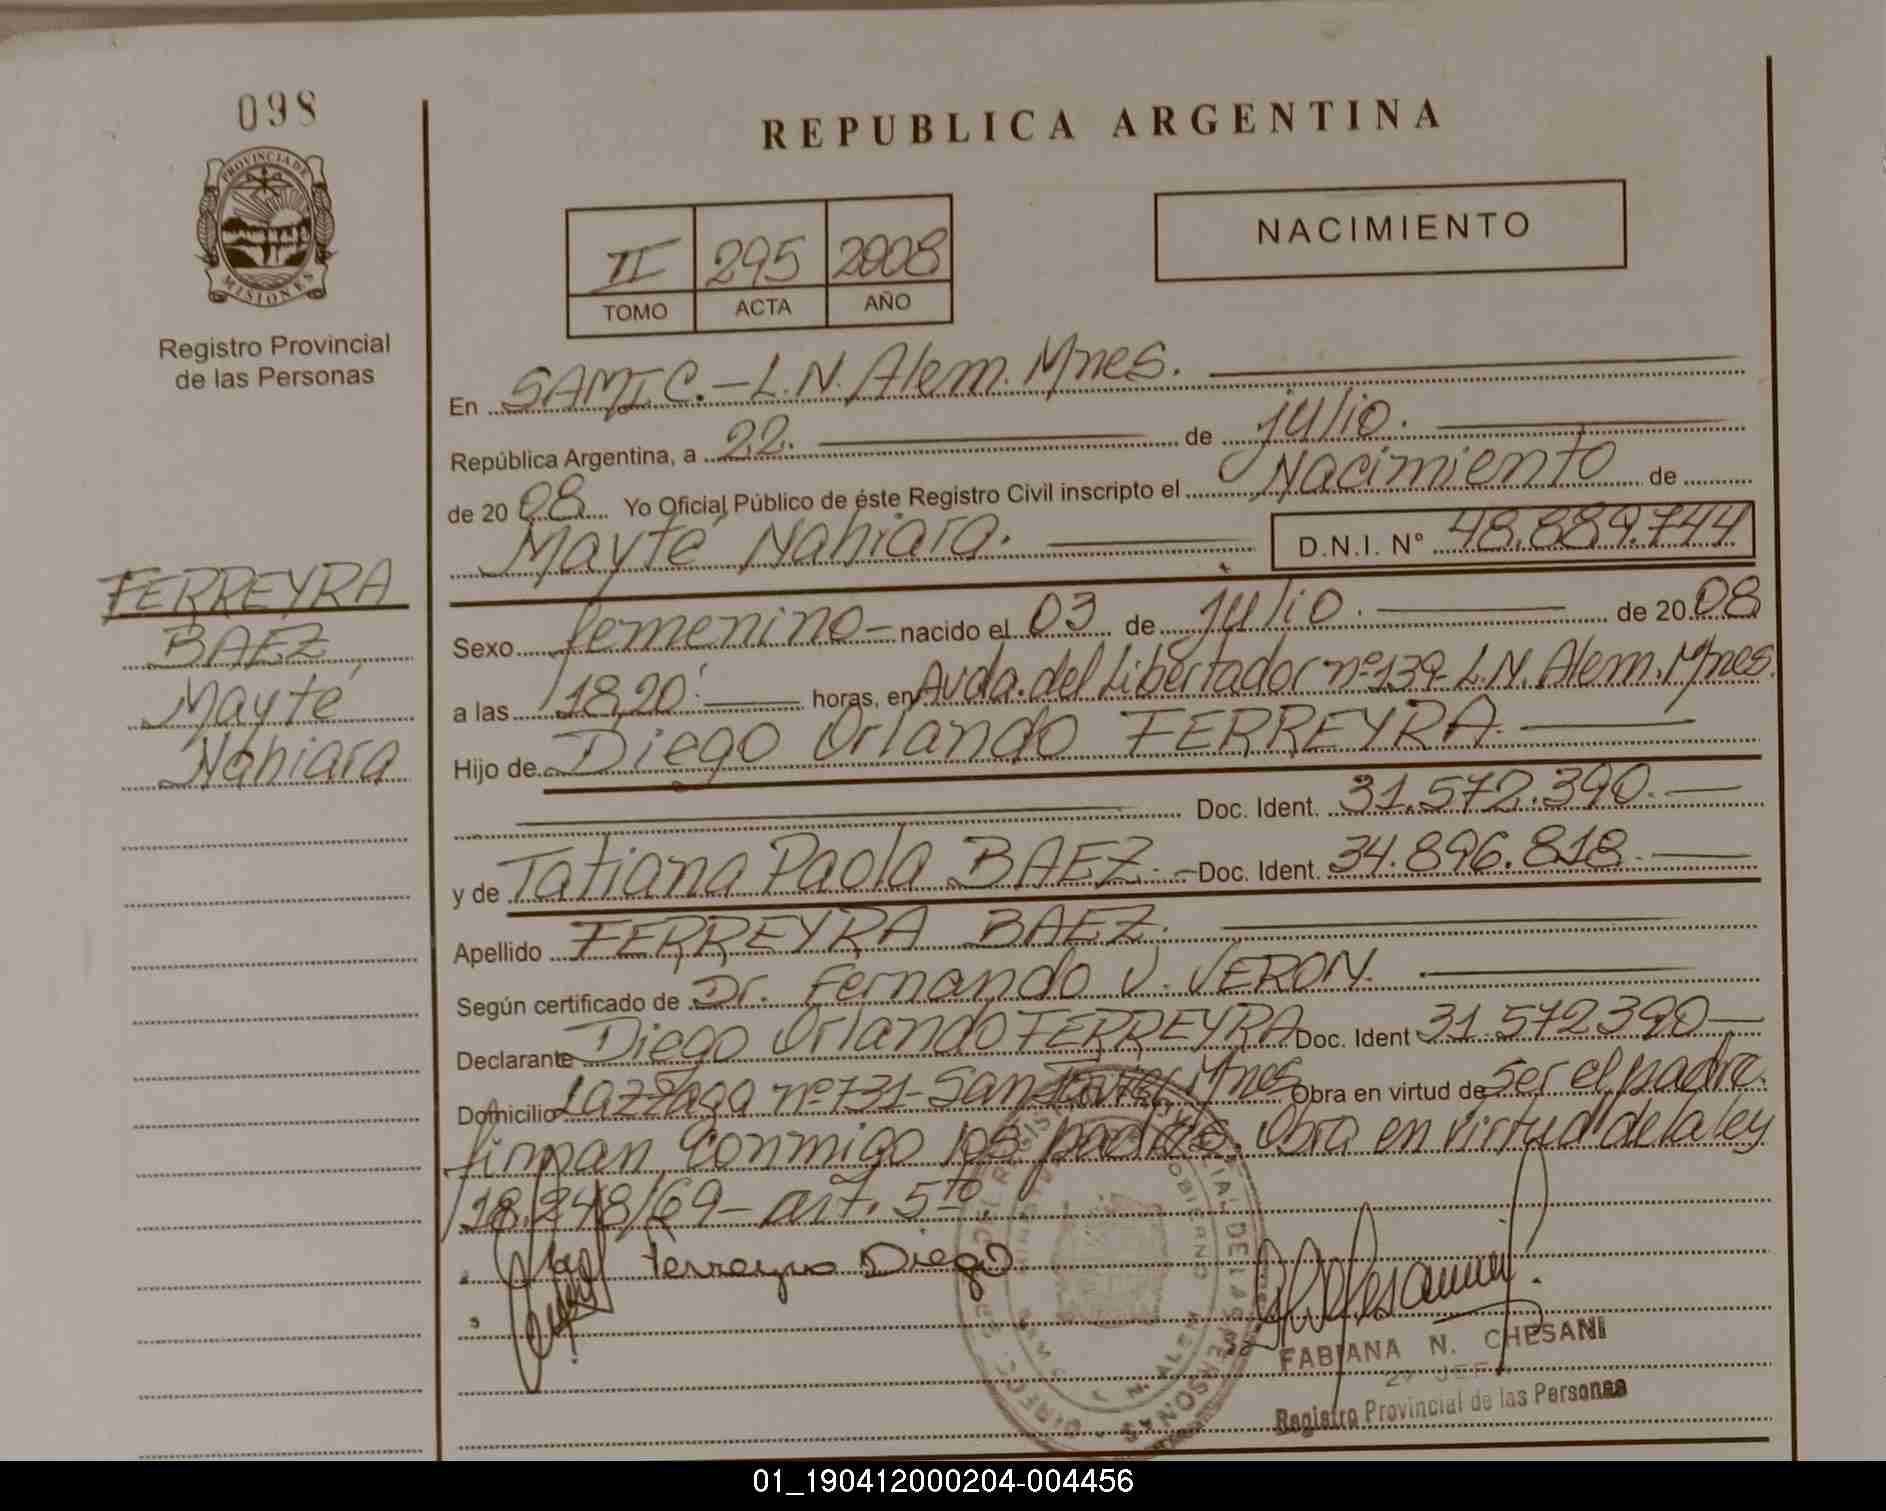 098
PROVINCIA DE
MISIONES
Registro Provincial
de las Personas
FERREYRA
BAEZ
Mayté
Nahiara
REPUBLICA ARGENTINA
II 295 2008
TOMO ACTA AÑO
NACIMIENTO
En SAMIC.-L.N. Alem. Mnes.
República Argentina, a 22. de julio.
de 20 08 Yo Oficial Público de éste Registro Civil inscripto el Nacimiento de
Mayté Nahiara. D.N.I. Nº 48.889.744
Sexo femenino- nacido el 03 de julio. de 20 08
a las 18,20' horas, en Avda. del Libertador nº 139- L.N. Alem. Mnes.
Hijo de Diego Orlando FERREYRA.
Doc. Ident. 31.572.390.
y de Tatiana Paola BAEZ.- Doc. Ident. 34.896.818.
Apellido FERREYRA BAEZ.
Según certificado de Dr. Fernando J. VERON.
Declarante Diego Orlando FERREYRA Doc. Ident 31.572.390
Domicilio nº 731- San Javier, Mnes Obra en virtud de ser el padre.
firman conmigo los padres. Obra en virtud de la ley
18.248/69- art. 5to.
Ferreyra Diego
FABIANA N. CHESANI
JEFE
Registro Provincial de las Personas
DE LAS PERSONAS
L. N. ALEM
01_190412000204-004456